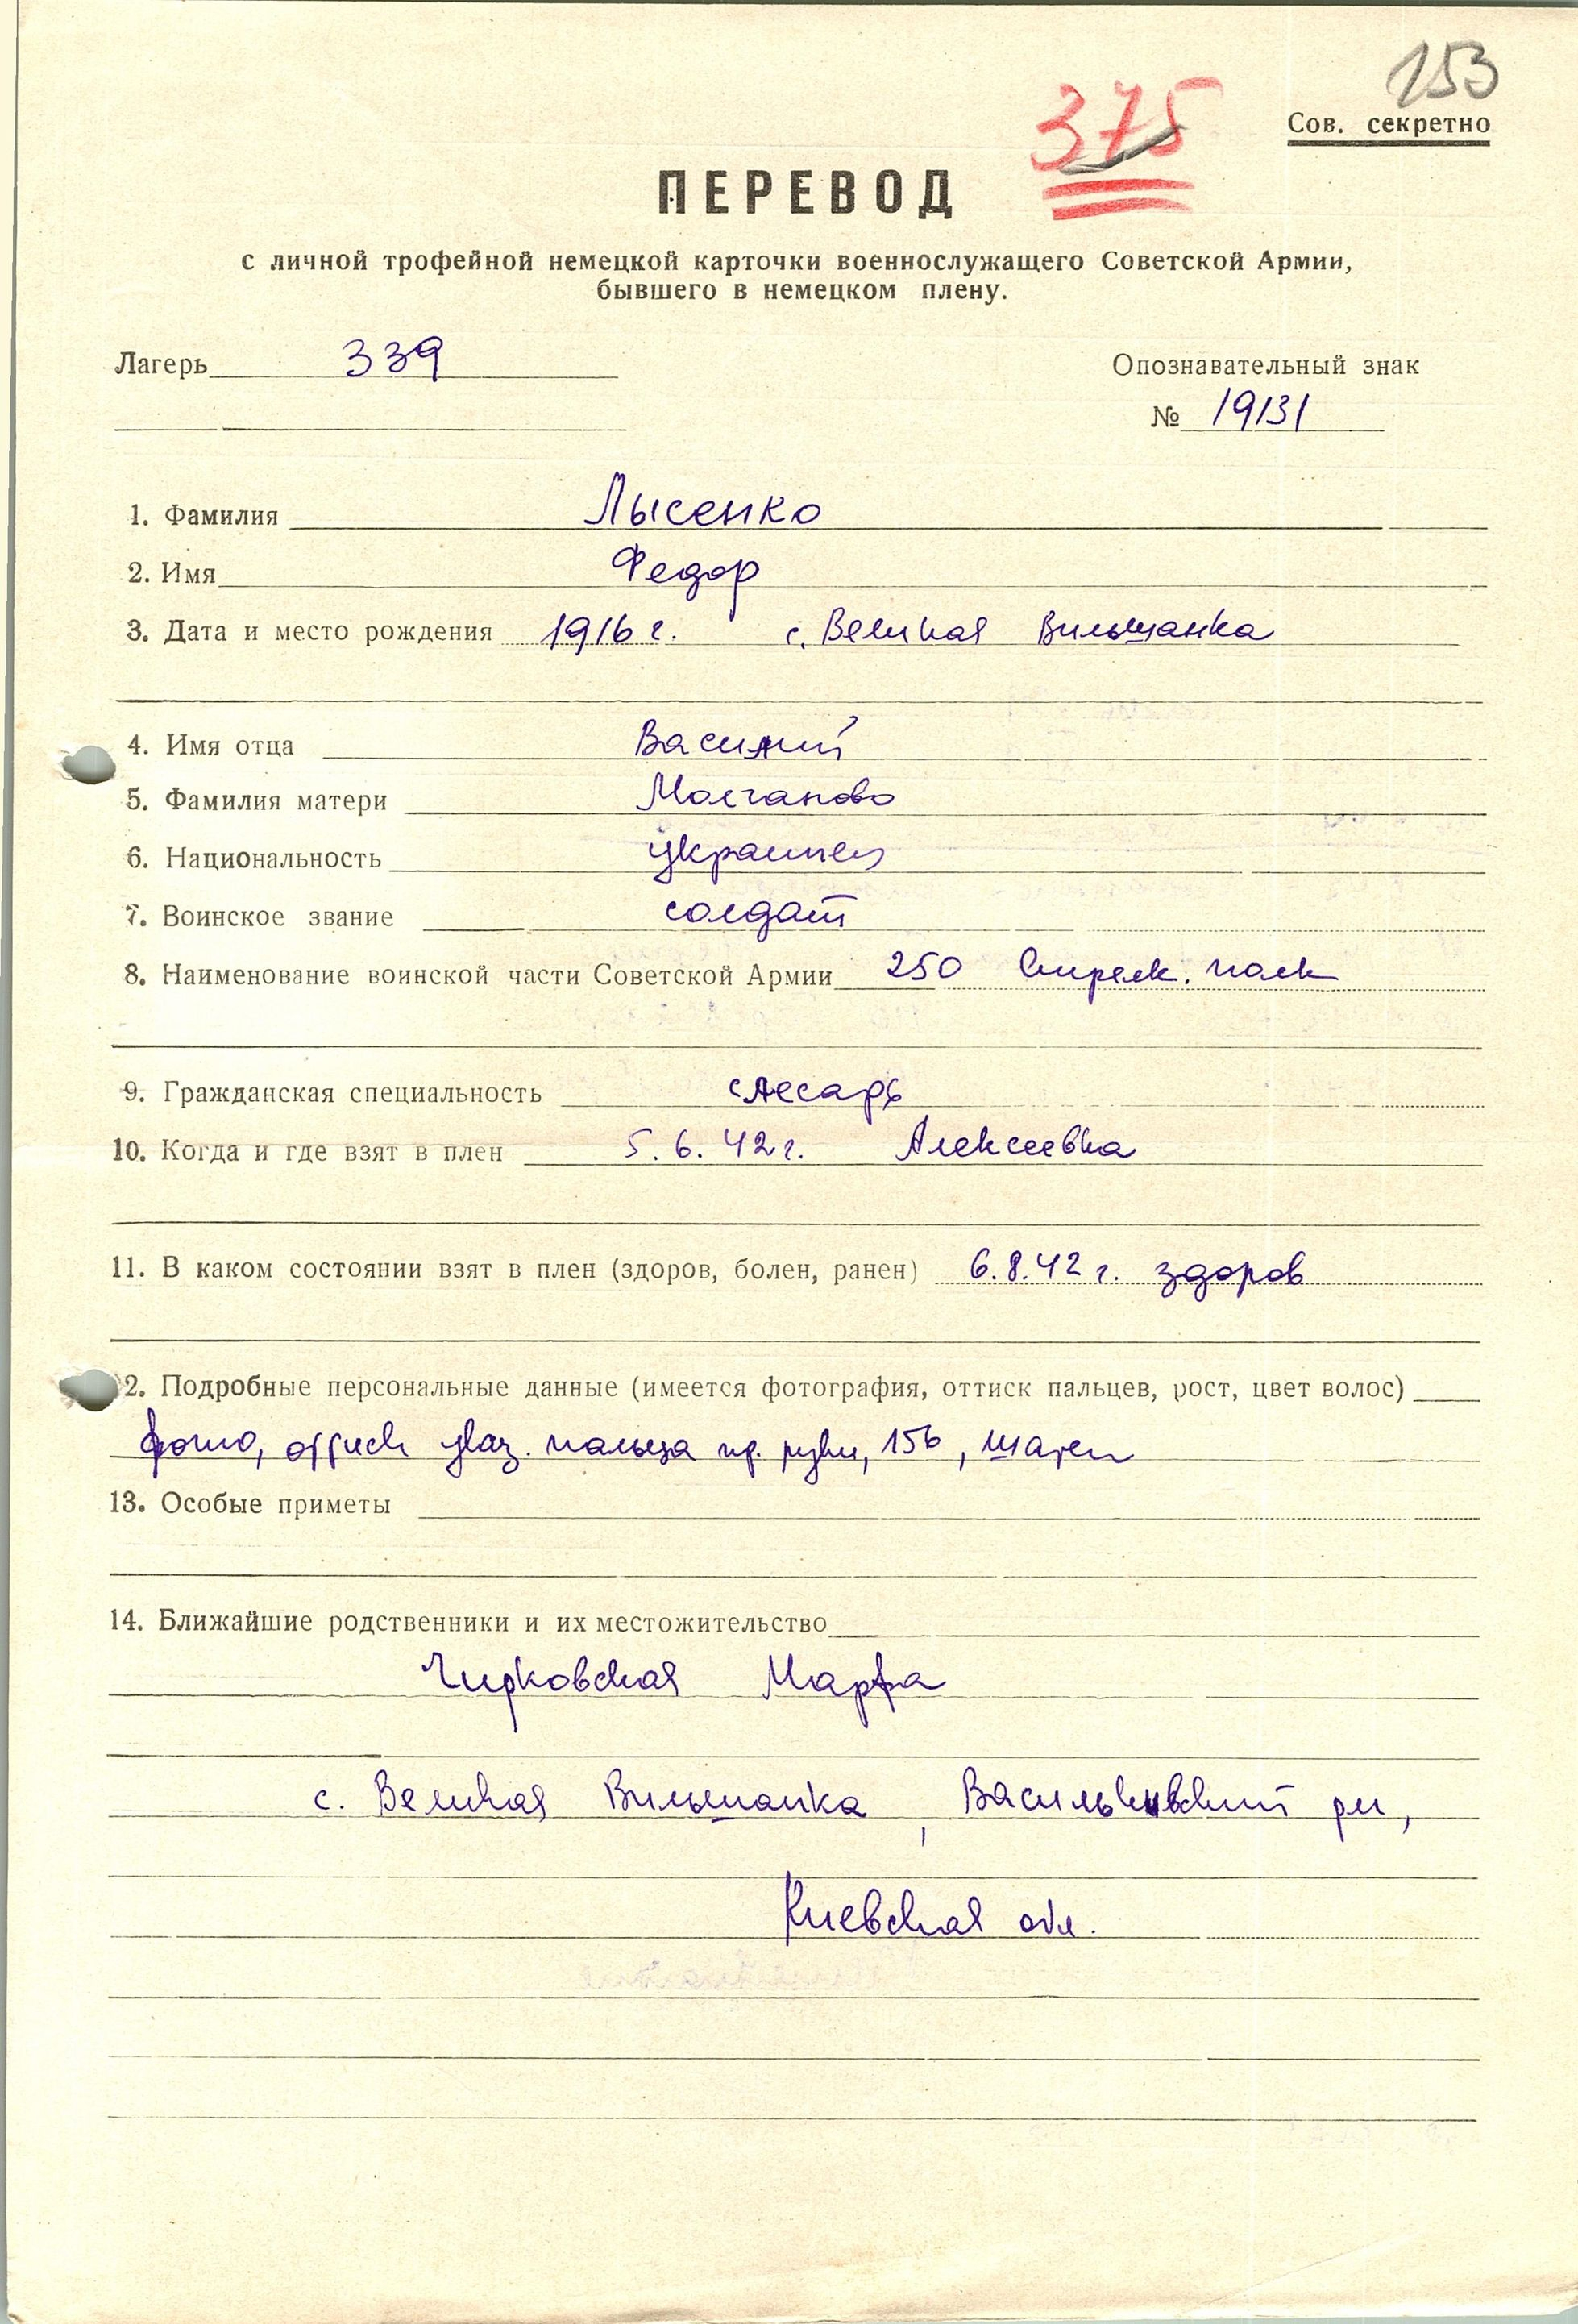 153
375
Сов. секретно
ПЕРЕВОД
с личной трофейной немецкой карточки военнослужащего Советской Армии,
бывшего в немецком плену.
Лагерь 339
Опознавательный знак
№ 19131
1. Фамилия Лысенко
2. Имя Федор
3. Дата и место рождения 1916 г. с. Великая Вильшанка
4. Имя отца Василий
5. Фамилия матери Молчаново
6. Национальность украинец
7. Воинское звание солдат
8. Наименование воинской части Советской Армии 250 Стрелк. полк
9. Гражданская специальность слесарь
10. Когда и где взят в плен 5.6.42 г. Алексеевка
11. В каком состоянии взят в плен (здоров, болен, ранен) 6.8.42 г. здоров
2. Подробные персональные данные (имеется фотография, оттиск пальцев, рост, цвет волос)
фото, оттиск указ. пальца пр. руки, 156, шатен
13. Особые приметы
14. Ближайшие родственники и их местожительство
Чирковская Марфа
с. Великая Вильшанка, Васильковский рн,
Киевская обл.